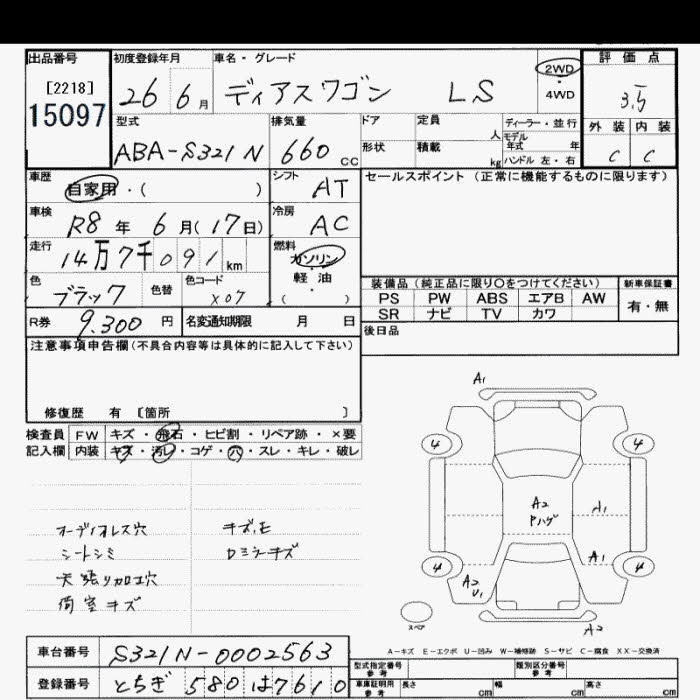 出品番号 初度登録年月 車名・グレード 評価点
[2218] 26 6月 ディアスワゴン LS 2WD ・ 4WD 3.5
15097
型式 排気量 ドア 定員 人 ディーラー・並行 外装 内装
ABA-S321N 660cc 形状 積載 kg モデル年式 年 ハンドル 左・右 C C
車歴 自家用・( ) シフト AT セールスポイント(正常に機能するものに限ります)
車検 R8年 6月(17日) 冷房 AC
走行 14万7千091km 燃料 ガソリン・軽油 ( )
色 ブラック 色替 色コード X07
装備品(純正品に限り○をつけてください) 新車保証書
PS PW ABS エアB AW 有・無
SR ナビ TV カワ
R券 9.300円 名変通知期限 月 日
後日品
注意事項申告欄(不具合内容等は具体的に記入して下さい)
修復歴 有 [箇所 ]
検査員 FW キズ・飛石・ヒビ割・リペア跡・×要
記入欄 内装 キズ・汚レ・コゲ・穴・スレ・キレ・破レ
A1
4 4
A2 Pハゲ A1
A1
4 4
A2 U1
スペア
A2
オーディオレス穴 キズ、モ
シートシミ ロミラーキズ
天張り加工穴
荷室キズ
A-キズ E-エクボ U-凹み W-補修跡 S-サビ C-腐食 XX-交換済
車台番号 S321N-0002563
登録番号 とちぎ 580 は7610
型式指定番号 参考 類別区分番号 参考
車庫証明用 参考 長さ cm 幅 cm 高さ cm